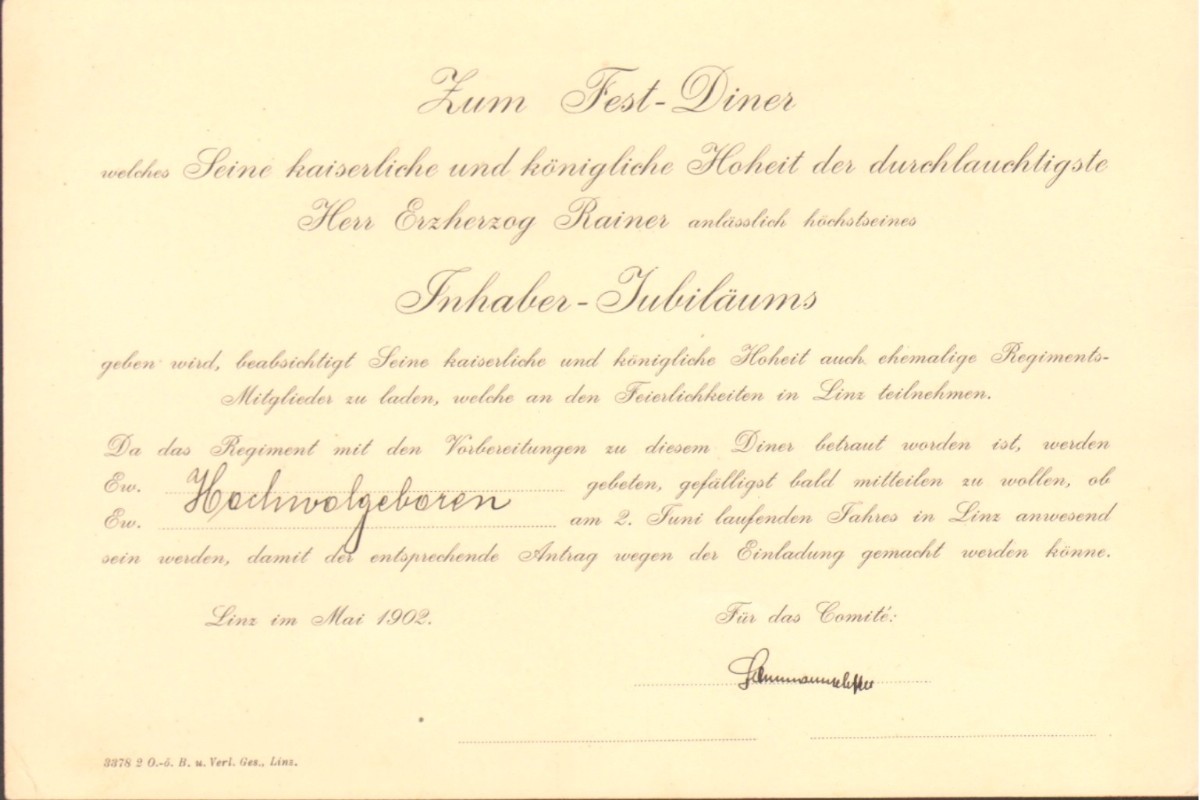 Zum Fest-Diner
welches Seine kaiserliche und königliche Hoheit der durchlauchtigste
Herr Erzherzog Rainer anlässlich höchstseines
Inhaber-Jubiläums
geben wird, beabsichtigt Seine kaiserliche und königliche Hoheit auch ehemalige Regiments-
Mitglieder zu laden, welche an den Feierlichkeiten in Linz teilnehmen.
Da das Regiment mit den Vorbereitungen zu diesem Diner betraut worden ist, werden
Ew. Hochwolgeboren gebeten, gefälligst bald mitteilen zu wollen, ob
Ew. am 2. Juni laufenden Jahres in Linz anwesend
sein werden, damit der entsprechende Antrag wegen der Einladung gemacht werden könne.
Linz im Mai 1902.
Für das Comité:
3378 2 O.-ö. B. u. Verl. Ges., Linz.